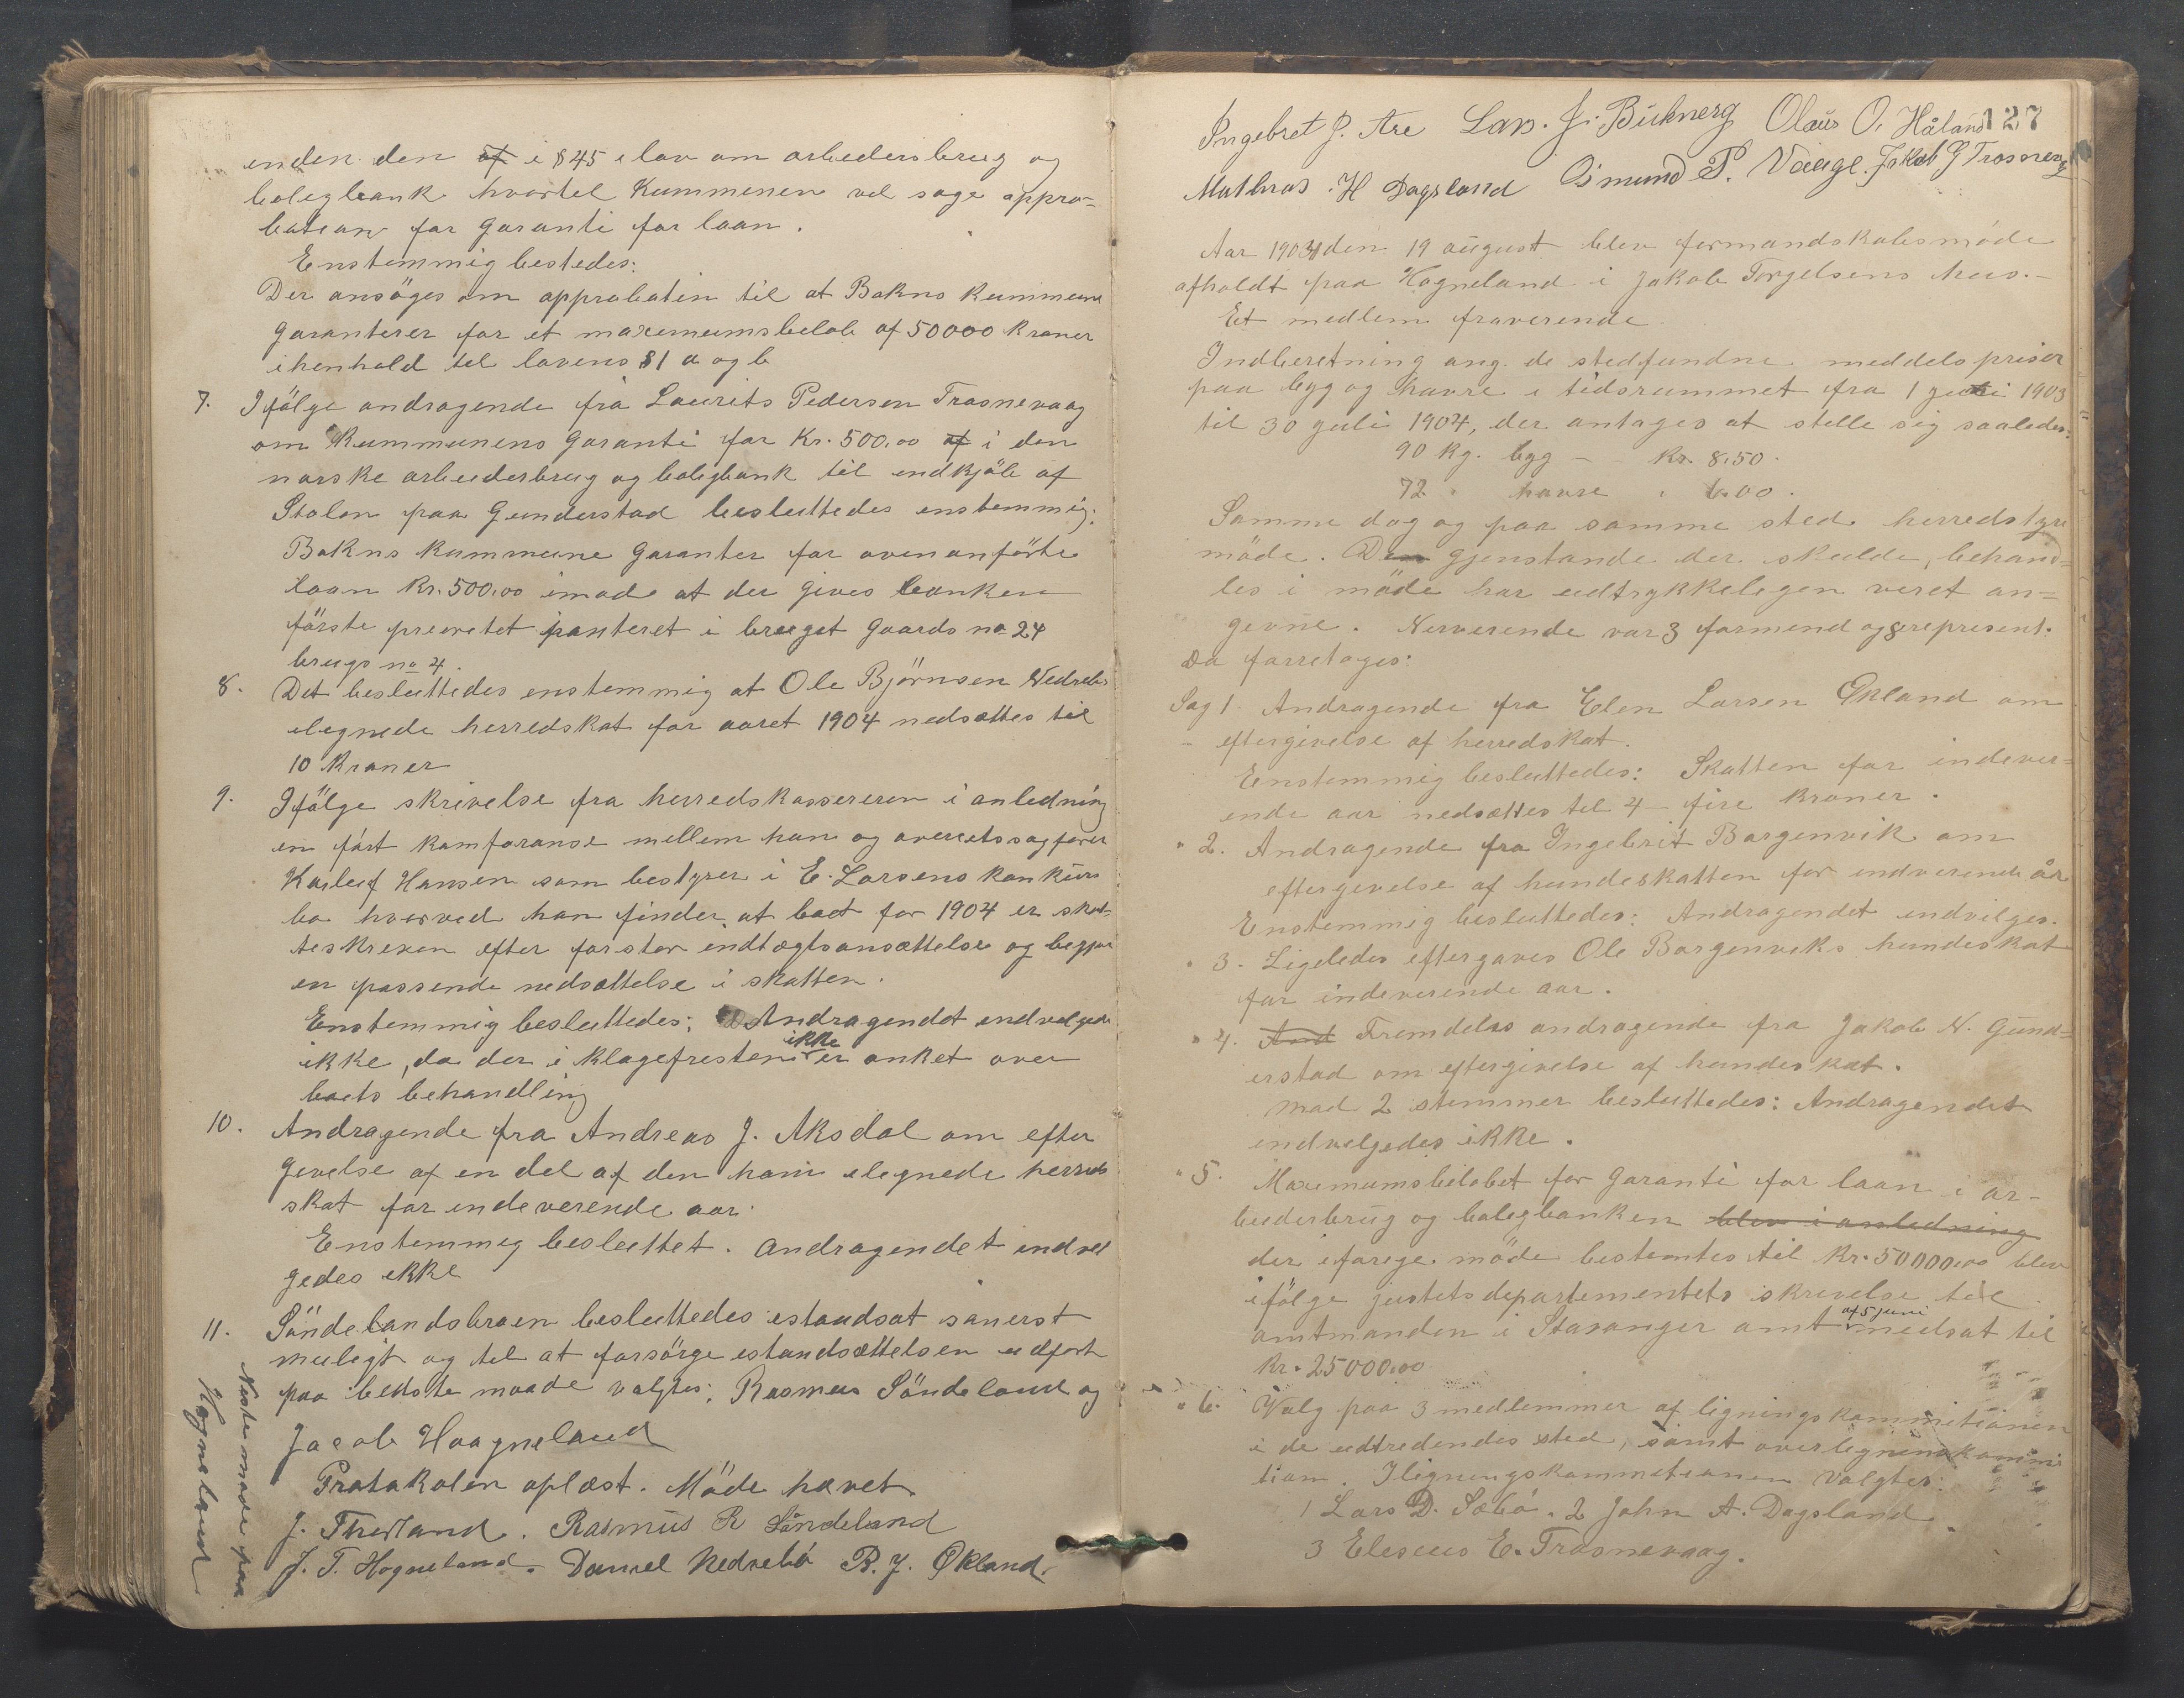 enden den af i § 45 i lov om arbeidersbrug og
boligbank hvortil Kummunen vil søge appro-
bation for garanti for laan.
Enstemmig bestedes:
Der ansöges om approbatin til at Bokns kummune
garanterer for et maximumsbelob af 50000 kroner
ihenhold til lovens § 1 a og b
7. Ifölge andragende fra Laurits Pedersen Trosnevaag
om Kummunens garanti for Kr. 500.00 af i den
norske arbeiderbrug og boligbank til indkjöb af
Stølen paa Gunderstad besluttedes enstemmig:
Bokns kummune garanter for ovenanförte
laan Kr. 500.00 imod at der gives banken
förste prioritet panteret i bruget gaards no 24
brugs no 4.
8. Det besluttedes enstemmig at Ole Björnsen Nedrebø
ilegnede herredskat for aaret 1904 nedsættes til
10 Kroner
9. Ifölge skrivelse fra herredskassereren i anledning
en fört komforanse mellem han og overretssagförer
Karluf Hansen som bestyrer i E. Larsens konkurs
bo hvorved han finder at boet for 1904 er skat-
teskreven efter for stor indtægtsansættelse og begjær
en passende nedsættelse i skatten.
Enstemmig besluttedes: Andragendet indvelgede
ikke, da der i klagefristen ikke er anket over
boets behandling
10. Andragende fra Andreas J. Aksdal om efter
givelse af en del af den ham ilegnede herreds
skat for indeverende aar.
Enstemmig besluttet. Andragendet indvel
gedes ikke
11. Söndelandsbroen besluttedes istandsat snarest
muligt og til at forsörge istandsættelsen udfört
paa bedste maade valgtes: Rasmus Söndeland og
Jacob Haagneland
Protokolen oplæst. Möde hævet.
J. Thorland. Rasmus R Söndeland
J. T. Hogneland. Daniel Nedrebö B. J. Økland.
Neste möde paa
Hogneland
127
Ingebret J. Are Lars. J. Buknerg Olaus O. Håland
Mathias. H Dagsland Osmund P. Vaage. Jakob J Trosneng
Aar 1904 den 19 august blev formandskabsmöde
afholdt paa Hogneland i Jakob Torgelsens hus.
Et medlem fraverende
Indberetning ang. de stedfundne meddels priser
paa byg og havre i tidsrummet fra 1 juli 1903
til 30 juli 1904, der antages at stelle sig saaledes:
90 Kg. byg — Kr. 8.50.
72 " havre " 6.00.
Samme dag og paa samme sted herredstyre
möde. Den gjenstande der skulde, behand-
les i möde har udtrykkelegen veret an-
gevne. Nerverende var 3 formend og 8 represent.
Da forretoges:
Sag 1. Andragende fra Elen Larsen Økland om
eftergivelse af herredskat.
Enstemmig besluttedes: Skatten for indever-
ende aar nedsættes til 4 — fire kroner.
" 2. Andragende fra Ingebrit Borgenvik om
eftergivelse af hundeskatten for indverende år
Enstemmig besluttedes: Andragendet indvilges.
" 3. Ligeledes eftergaves Ole Borgenviks hundeskat
for indeverende aar.
" 4. And Fremdeles andragende fra Jakob N. Gund-
erstad om eftergivelse af hundeskat.
Mod 2 stemmer besluttedes: Andragendet
indvelgedes ikke.
" 5. Maximumsbelöbet for garanti for laan i ar-
beiderbrug og boligbanken blev i anledning
der i forrige möde bestemtes til Kr. 50000.00 blev
ifölge justitsdepartementets skrivelse til
amtmanden i Stavanger amt af 5 juni nedsat til
Kr. 25000.00
" 6. Valg paa 3 medlemmer af ligningskommitionen
i de udtredendes sted, samt overligningskommi
tion. I ligningskommitionen valgtes:
1 Lars D. Sæbö. 2 John A. Dagsland.
3 Eliseus E. Trosnevaag.